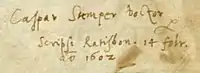 Caspar Stemper Doctor
Scripsi Ratisbon. 14 febr.
ao 1602